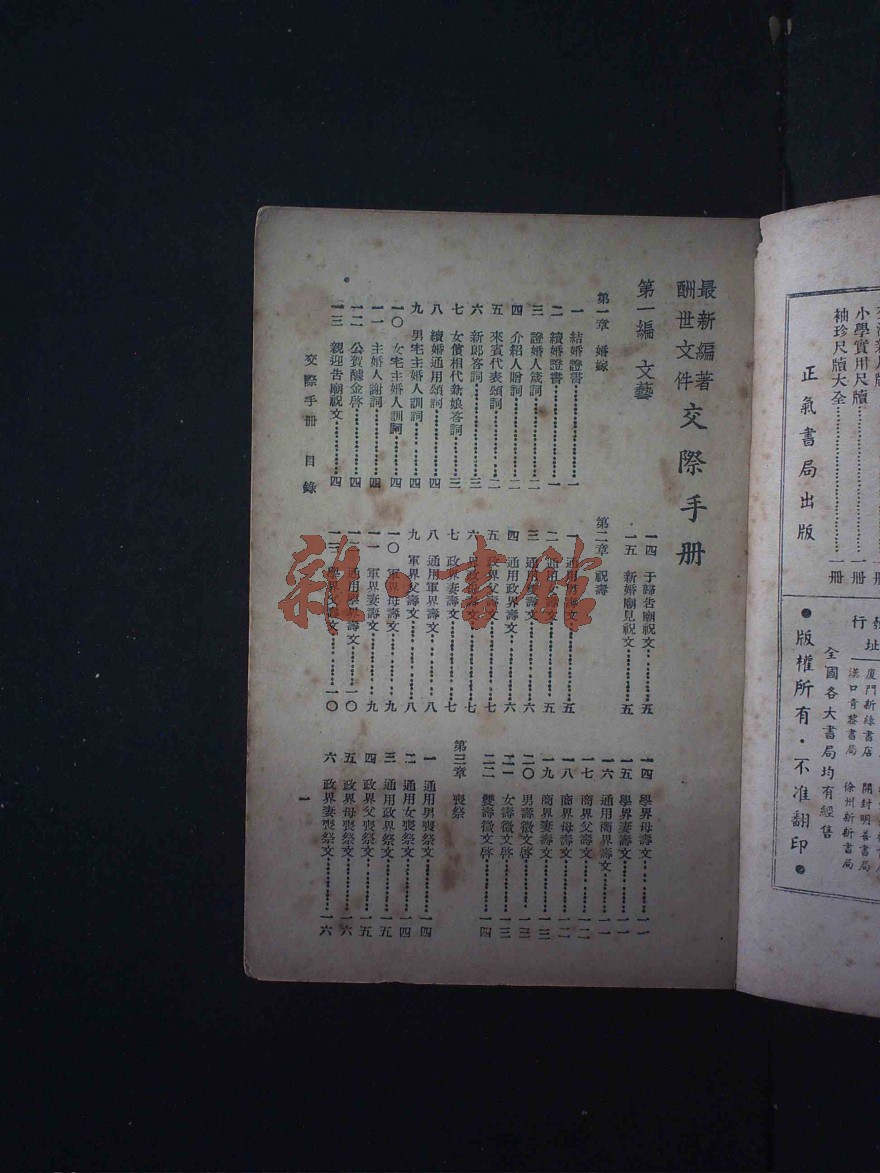 最新編著
酬世文件
交際手册
第一編 文藝
第一章 婚嫁
一 結婚證書………一
二 續婚證書………一
三 證婚人箴詞………二
四 介紹人贈詞………二
五 來賓代表頌詞………二
六 新郎答詞………三
七 女儐相代新娘答詞………三
八 續婚通用頌詞………四
九 男宅主婚人訓詞………四
一〇 女宅主婚人訓詞………四
一一 主婚人謝詞………四
一二 公賀醵金啓………四
一三 親迎告廟祝文………四
一四 于歸告廟祝文………五
一五 新婚廟見祝文………五
第二章 祝壽
一 通用男壽文………五
二 通用女壽文………五
三 通用雙壽文………六
四 通用政界壽文………六
五 政界父壽文………七
六 政界母壽文………七
七 政界妻壽文………七
八 通用軍界壽文………八
九 軍界父壽文………八
一〇 軍界母壽文………九
一一 軍界妻壽文………九
一二 通用學界壽文………一〇
一三 學界父壽文………一〇
一四 學界母壽文………一一
一五 學界妻壽文………一一
一六 通用商界壽文………一一
一七 商界父壽文………一二
一八 商界母壽文………一二
一九 商界妻壽文………一三
二〇 男壽徵文啓………一三
二一 女壽徵文啓………一三
二二 雙壽徵文啓………一四
第三章 喪祭
一 通用男喪祭文………一四
二 通用女喪祭文………一四
三 通用政界祭文………一五
四 政界父喪祭文………一五
五 政界母喪祭文………一六
六 政界妻喪祭文………一六
交際手册 目錄
一
小學實用尺牘………一册
袖珍尺牘大全………一册
正氣書局出版
廈門新綠書店 開封明善書局
漢口青黎書局 徐州新新書局
全國各大書局均有經售
●版權所有・不准翻印●
雜·書館